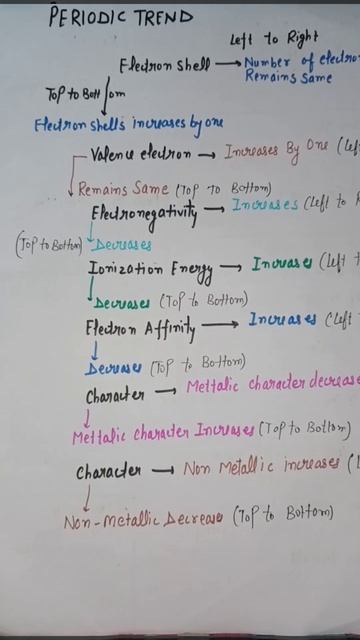 PERIODIC TREND
Left to Right
Electron shell → Number of electro
Remains Same
Top to Bottom
Electron shells increases by one
Valence electron → Increases By One (Lef
Remains Same (Top To Bottom)
Electronegativity → Increases (left to R
(Top to Bottom) Decreases
Ionization Energy → Increases (left t
Decreases (Top to Bottom)
Electron Affinity → Increases (left
Decreases (Top to Bottom)
Character → Mettalic character decrease
Mettalic character Increases (Top to Bottom)
Character → Non Metallic increases (
Non-Metallic Decrease (Top to Bottom)